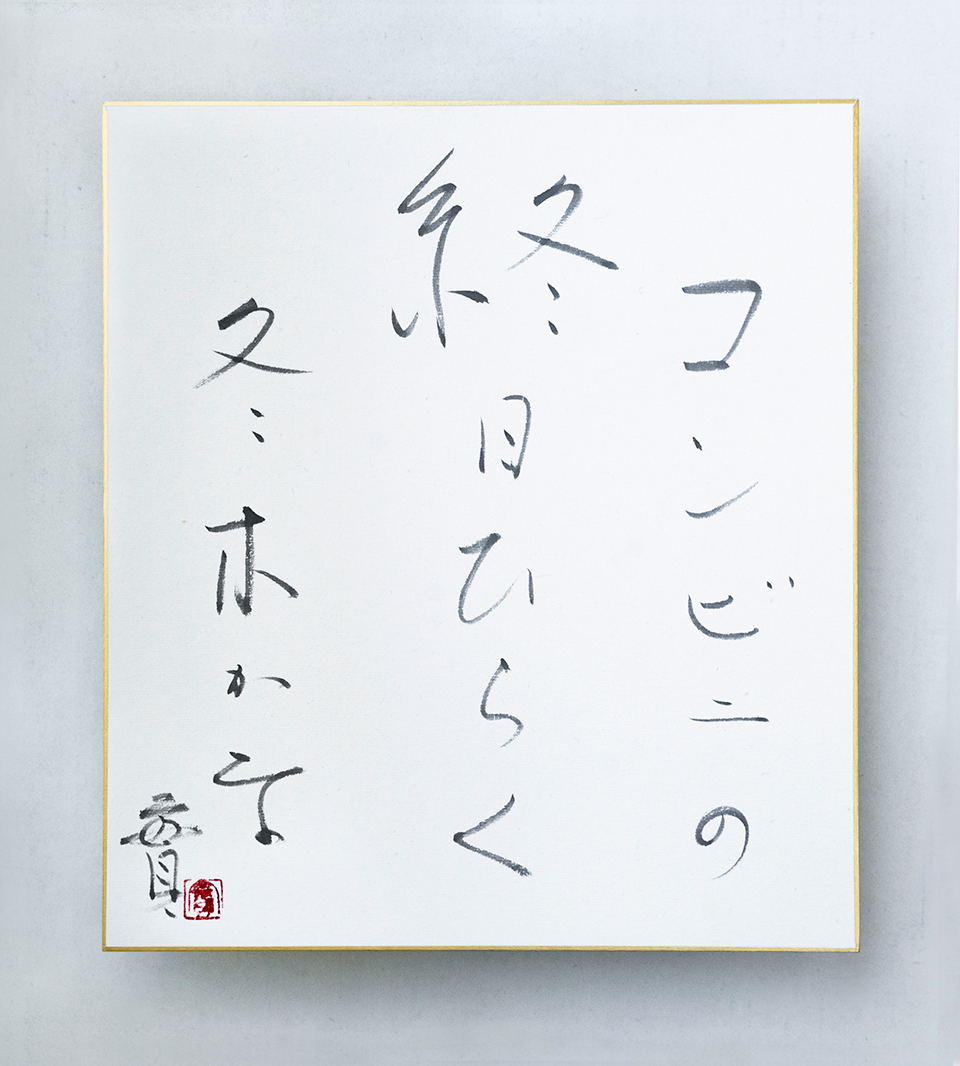 コンビニの
終日ひらく
冬木かな
實